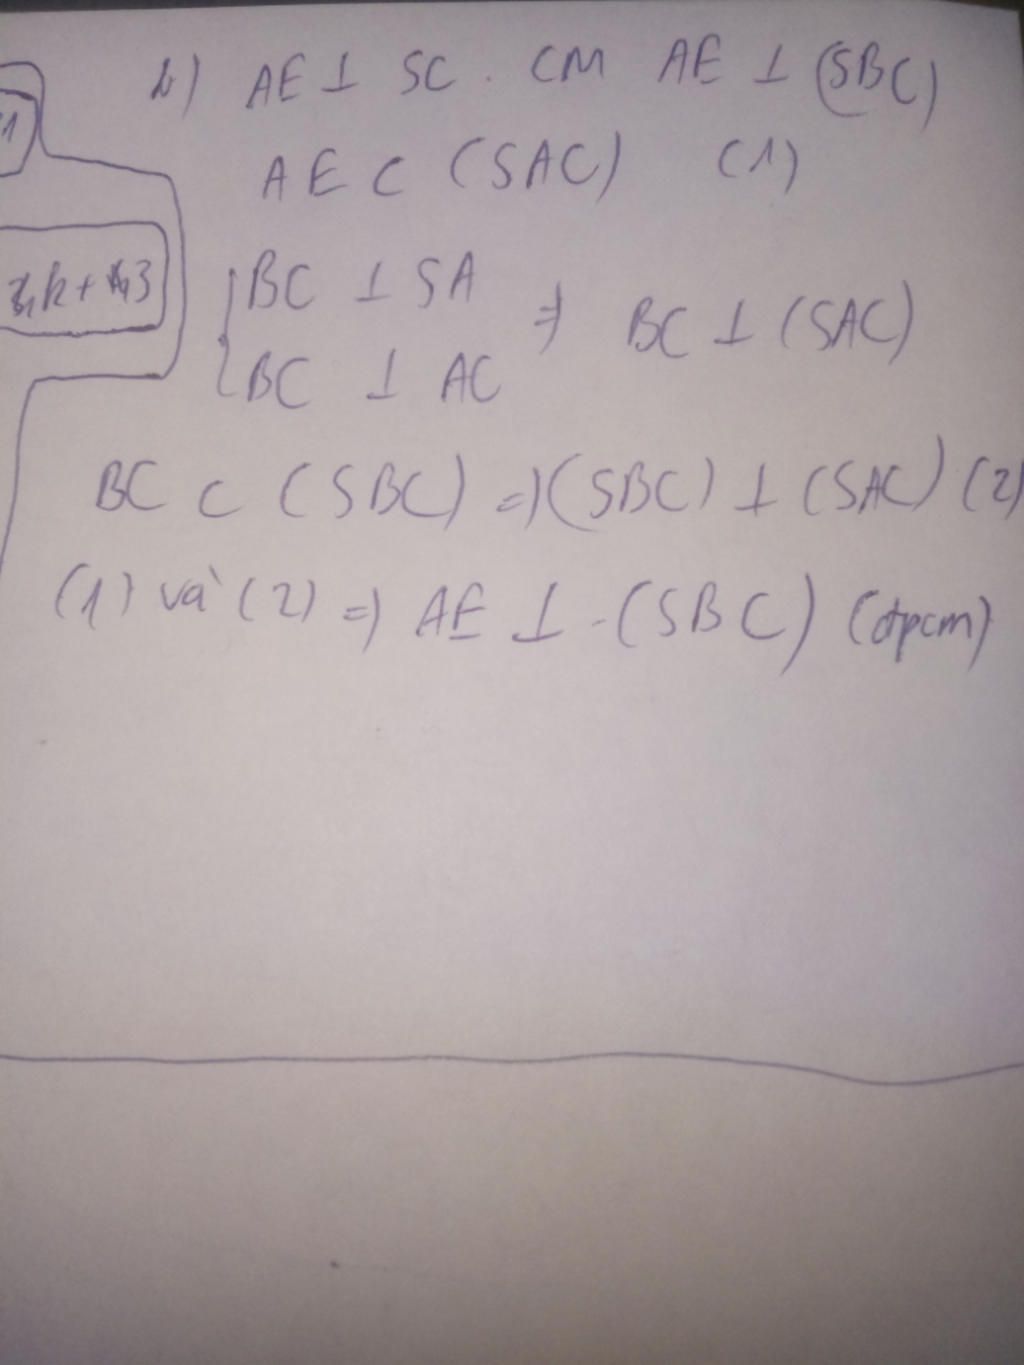 b) AE ⊥ SC . CM AE ⊥ (SBC)
AE ⊂ (SAC) (1)
BC ⊥ SA
BC ⊥ AC
⇒ BC ⊥ (SAC)
BC ⊂ (SBC) ⇒ (SBC) ⊥ (SAC) (2)
(1) và (2) ⇒ AE ⊥ (SBC) (đpcm)